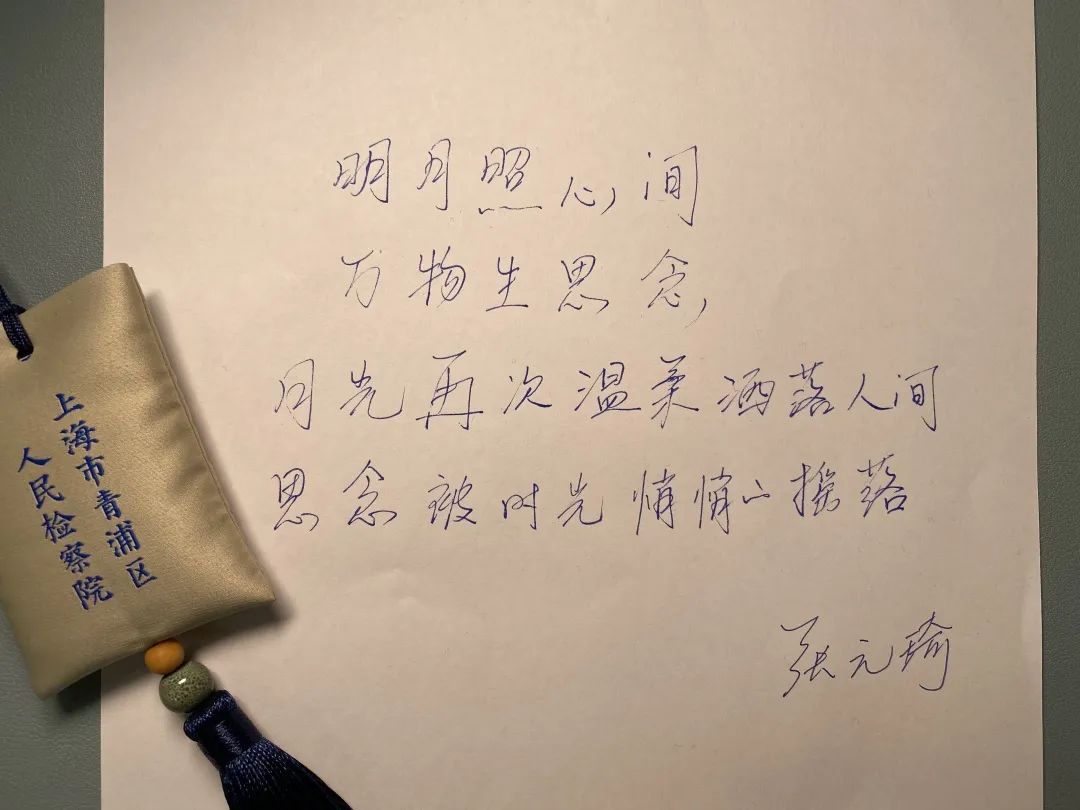 明月照心间
万物生思念
月光再次温柔洒落人间
思念被时光悄悄的揉落
张元琦
上海市青浦区
人民检察院